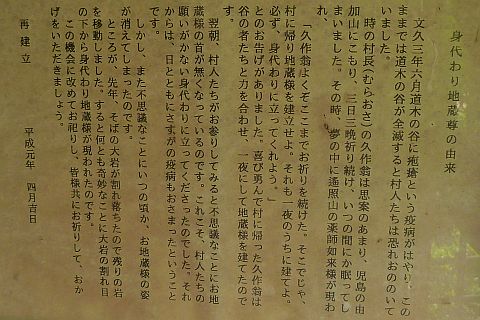 身代わり地蔵尊の由来
文久三年六月道木の谷に疱瘡という疫病がはやり、この
ままでは道木の谷が全滅すると村人たちは恐れおののいて
いました。
時の村長（むらおさ）の久作翁は思案のあまり、児島の由
加山にこもり、三日三晩祈り続け、いつの間にか眠ってし
まいました。その時、夢の中に遙照山の薬師如来様が現わ
れ、
「久作翁よくぞここまでお祈りを続けた。そこでじゃ、
村に帰り地蔵様を建立せよ。それも一夜のうちに建てよ。
必ず、身代わりに立ってくれよう。」
とのお告げがありました。喜び勇んで村に帰った久作翁は
谷の者たちと力を合わせ、一夜にして地蔵様を建てたので
す。
翌朝、村人たちがお参りしてみると不思議なことにお地
蔵様の首が無くなっているのです。これこそ、村人たちの
願いがかない身代わりに立ってくださったのでした。それ
からは、日とともにさすがの疫病もおさまったということ
です。
しかし、また不思議なことにいつの頃か、お地蔵様の姿
が消えてしまったのです。
ところが、先年、そばの大岩が割れ落ちたので残りの岩
を移動しました。すると何とも奇妙なことに大岩の割れ目
の下から身代わり地蔵様が現われたのです。
この機会に改めてお祀りし、皆様共にお祈りして、おか
げをいただきましょう。
再建立　平成元年　四月吉日